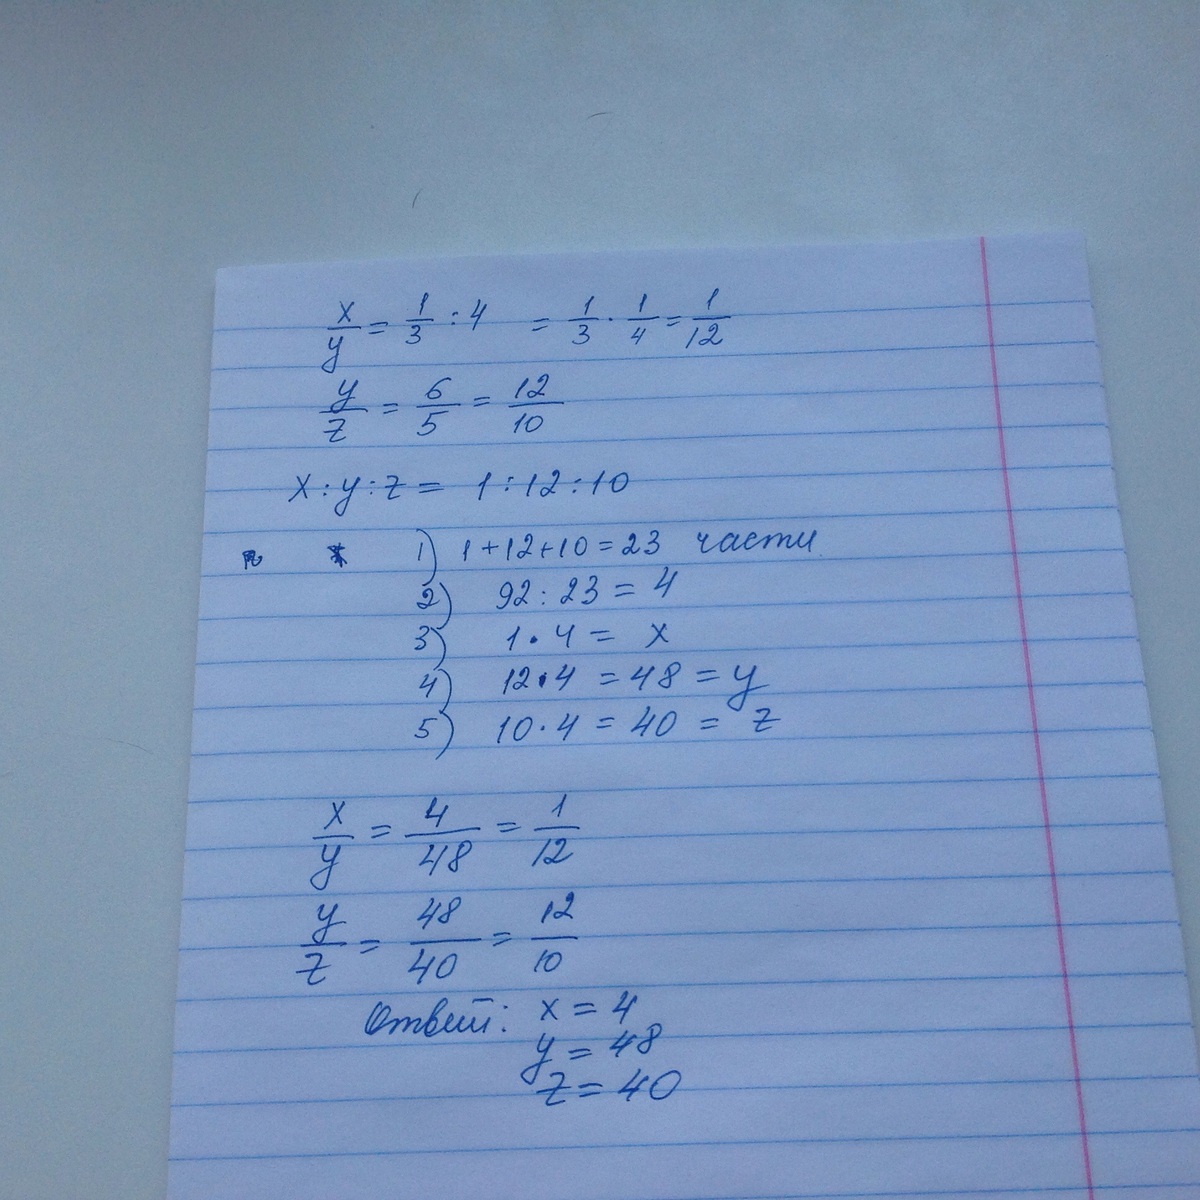 x/y = 1/3 : 4 = 1/3 · 1/4 = 1/12
y/z = 6/5 = 12/10
x : y : z = 1 : 12 : 10
1) 1 + 12 + 10 = 23 части
2) 92 : 23 = 4
3) 1 · 4 = x
4) 12 · 4 = 48 = y
5) 10 · 4 = 40 = z
x/y = 4/48 = 1/12
y/z = 48/40 = 12/10
Ответ: x = 4
y = 48
z = 40